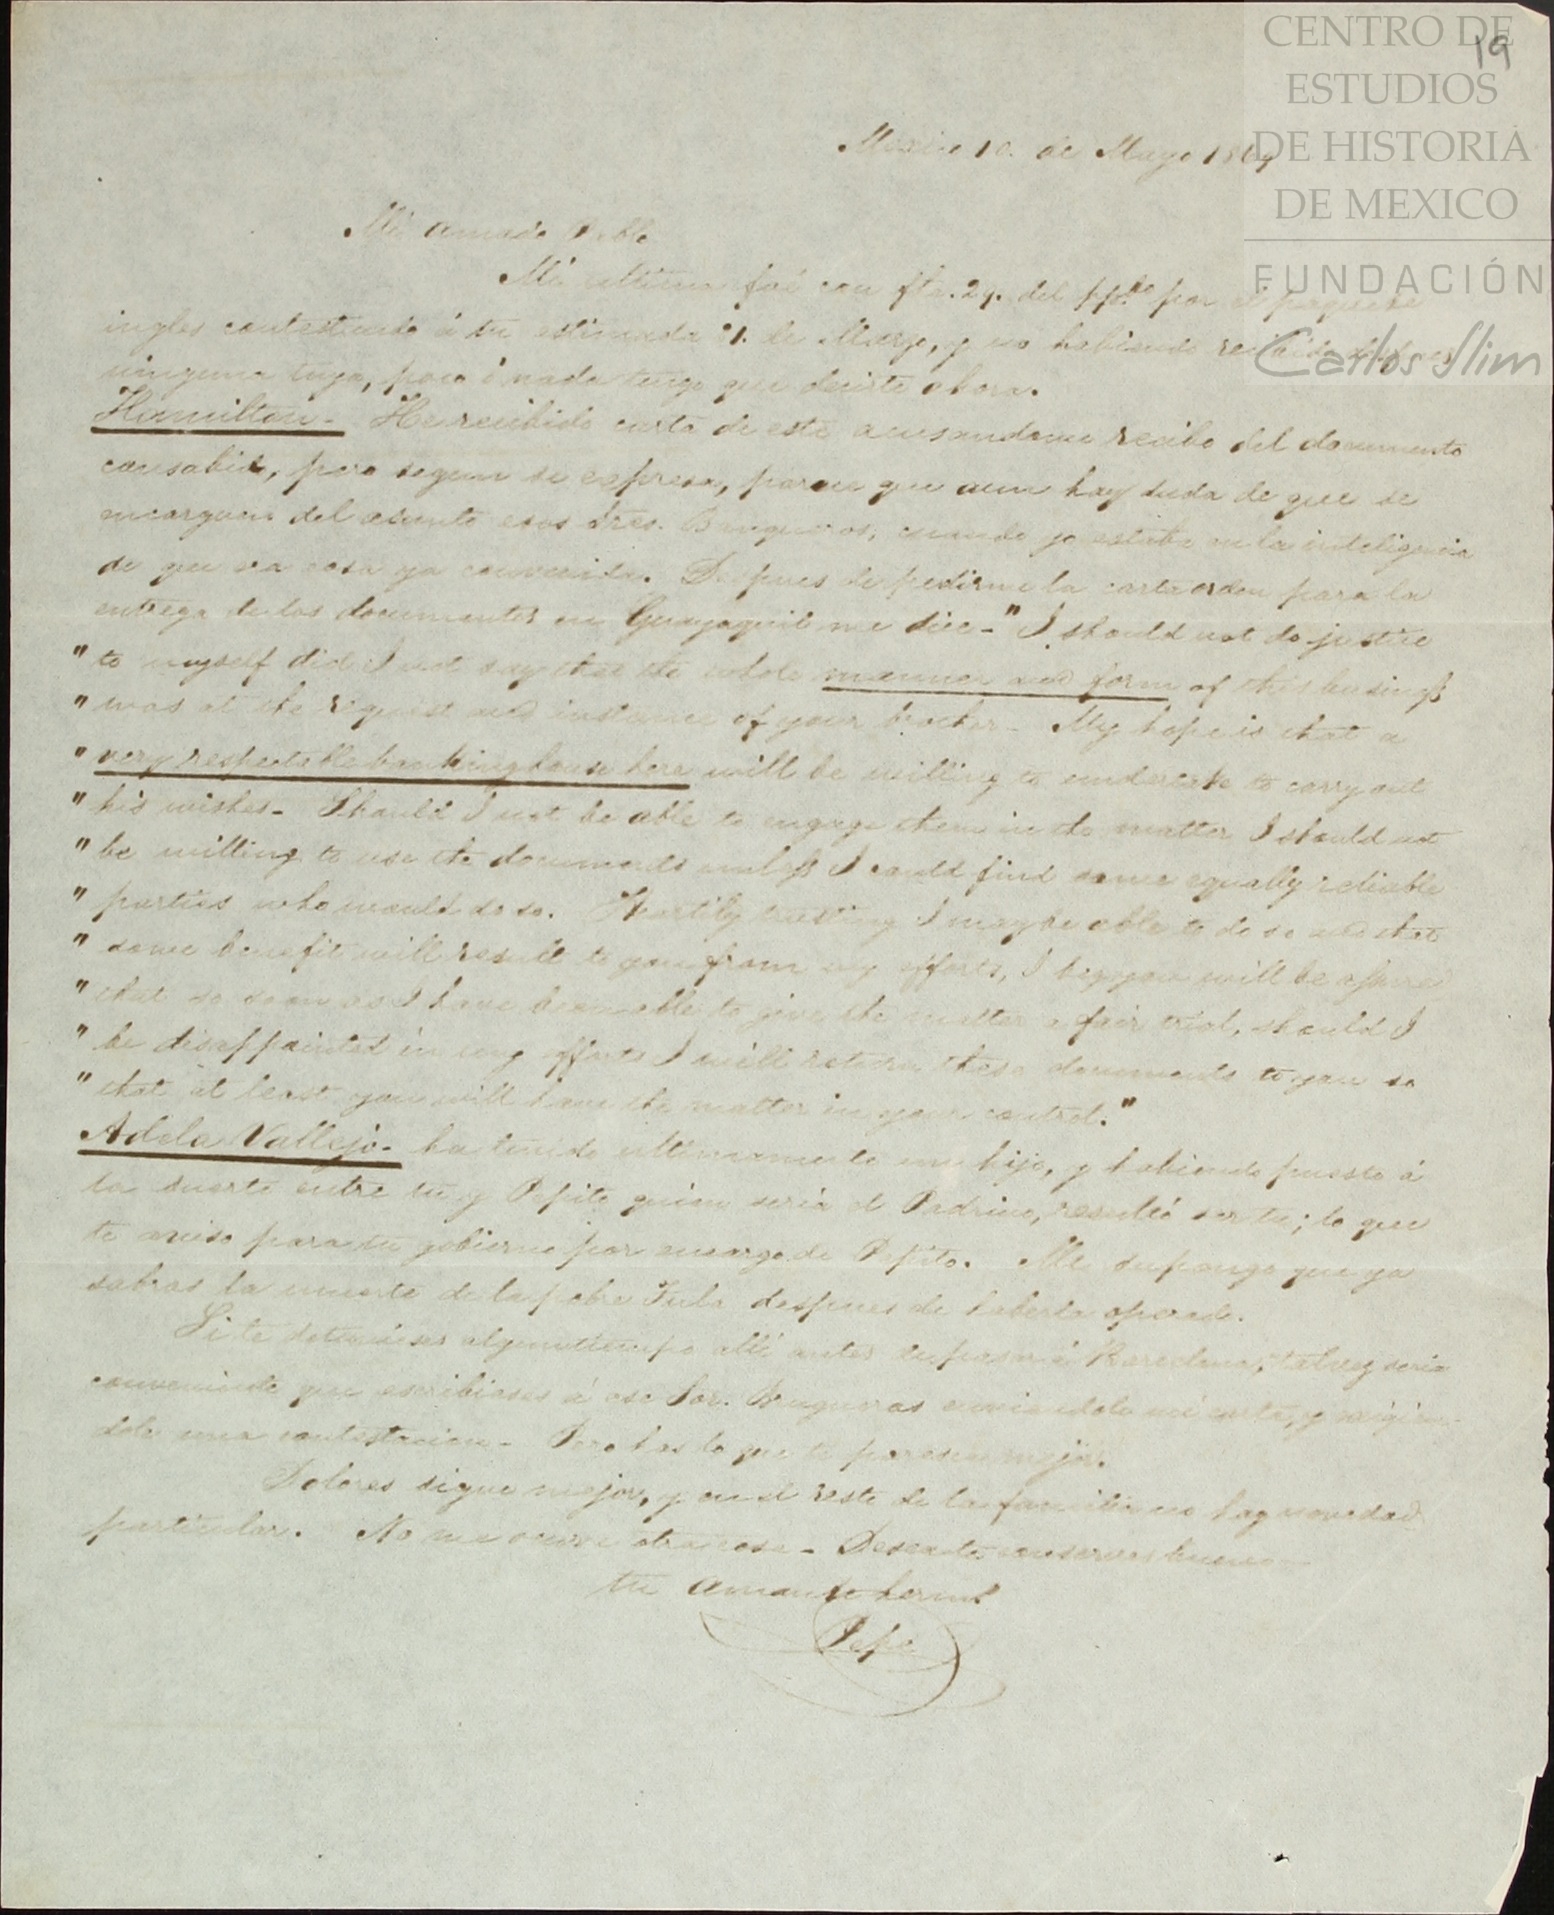 CENTRO DE
ESTUDIOS
DE HISTORIA
DE MEXICO
FUNDACIÓN
Carlos Slim
19
Mexico 10. de Mayo 1869
Mi amado Pablo
Mi ultima fué con fha. 29. del pp.do por el paquete
ingles contestando á tu estimada 31. de Marzo, y no habiendo recibido despues
ninguna tuya, poco ó nada tengo que decirte ahora.
Hamilton - He recibido carta de este acusandome recibo del documento
consabido, pero segun se espresa, parece que aun hay duda de que se
encarguen del asunto esos Sres. Banqueros, cuando yo estaba en la inteligencia
de que era cosa ya convenida. Despues de pedirme la carta orden para la
entrega de los documentos en Guayaquil me dice - " I should not do justice
" to myself did I not say that the whole manner and form of this business
" was at the request and instance of your brother - My hope is that a
" very respectable banking house here will be willing to undertake to carry out
" his wishes - Should I not be able to engage them in the matter I should not
" be willing to use the documents unless I could find some equally reliable
" parties who would do so. Heartily trusting I may be able to do so and that
" some benefit will result to you from my efforts, I beg you will be assured
" that so soon as I have been able to give the matter a fair trial, should I
" be disappointed in my efforts I will return these documents to you so
" that at least you will have the matter in your control."
Adela Vallejo - ha tenido ultimamente un hijo, y habiendo puesto á
la suerte entre tu y Pepito quien seria el Padrino, resultó ser tu; lo que
te aviso para tu gobierno por encargo de Pepito. Me supongo que ya
sabras la muerte de la pobre Tula despues de haberla operado.
Si te detuvieses algun tiempo allí antes de pasar á Barcelona, talvez seria
conveniente que escribieses á ese Sor. Brugueras enviandole mi carta, y exigien-
dole una contestacion - Pero haz lo que te parezca mejor.
Dolores sigue mejor, y en el resto de la familia no hay novedad
particular. No me ocurre otra cosa - Deseo te conserves bueno -
tu amante herm.o
Pepe